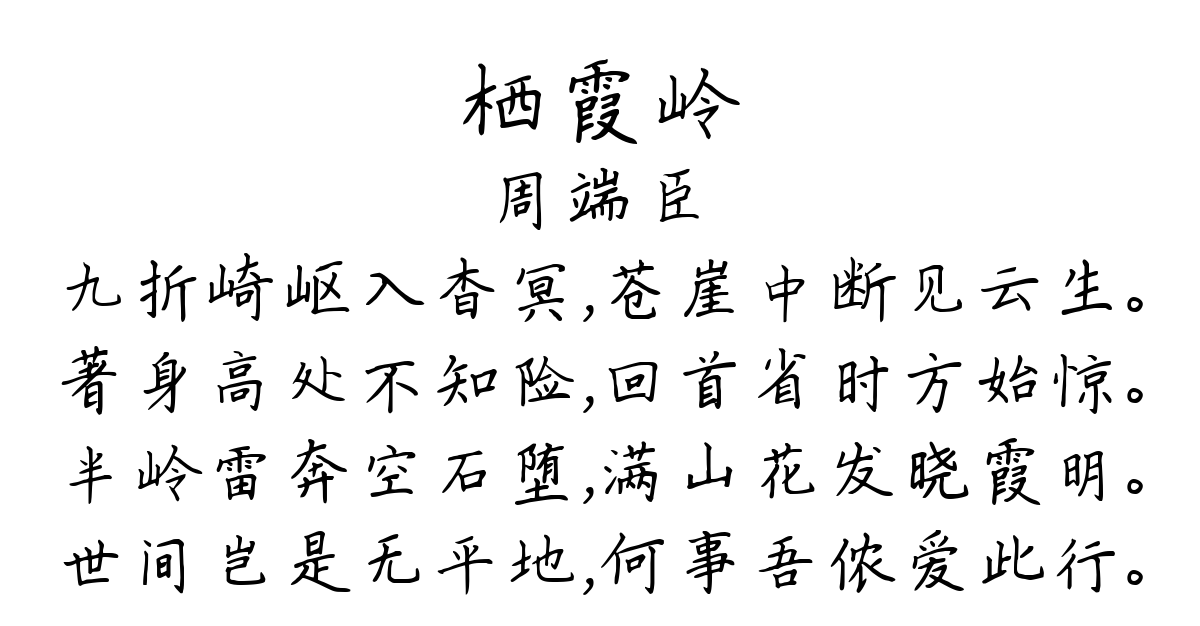 栖霞岭
周端臣
九折崎岖入杳冥,苍崖中断见云生。
著身高处不知险,回首省时方始惊。
半岭雷奔空石堕,满山花发晓霞明。
世间岂是无平地,何事吾侬爱此行。